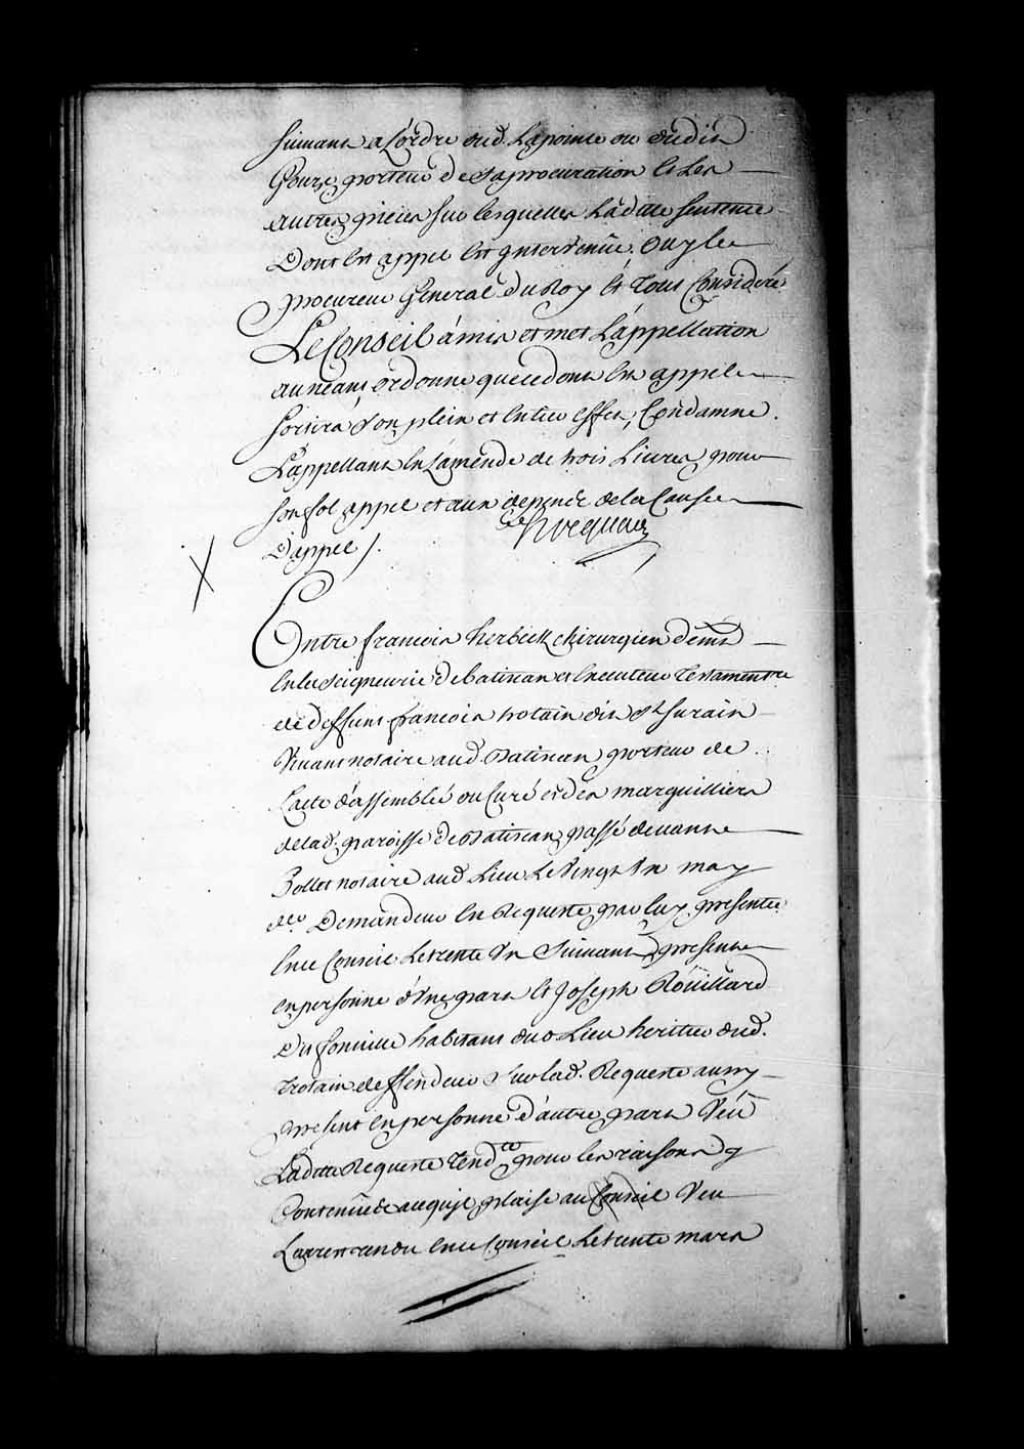 suivant a L'ordre dud. Lapointe ou dudit
porteur de sa procuration et les
autres pieces sur lesquelles Ladite sentence
Dont est appel est Intervenüe, Ouy le
procureur General du Roy et Tout Consideré
Le Conseil à mis et met L'appellation
au néant, ordonne que ce dont est appel
sortira son plein et entier effet, Condamne
L'appellant en L'amende de trois Livres pour
son fol appel et aux depends de la Cause
D'appel /.
Entre francois herbecq chirurgien demt
en la Seigneurie de batiscan et Executeur Testamentre
de deffunt francois trotain dit St Surain
Vivant notaire aud. Batiscan porteur de
L'acte d'assemblée du Curé et des marguilliers
de lad. paroisse de Batiscan passé devant
notaire aud. Lieu Le Vingt Un may
der Demandeur en Requeste par luy presentée
en ce Conseil Le trente Un Suivant present
en personne d'Une part et Joseph Roüillard
Dit fonville habitant dud. Lieu heritier dud.
Trotain deffendeur Sur lad. Requeste aussy
present en personne d'autre part Veü
Ladite Requeste Tendte pour les raisons y
Contenües a ce qu'il plaise au Conseil Veu
L'arrest rendu en ce Conseil Le trente mars